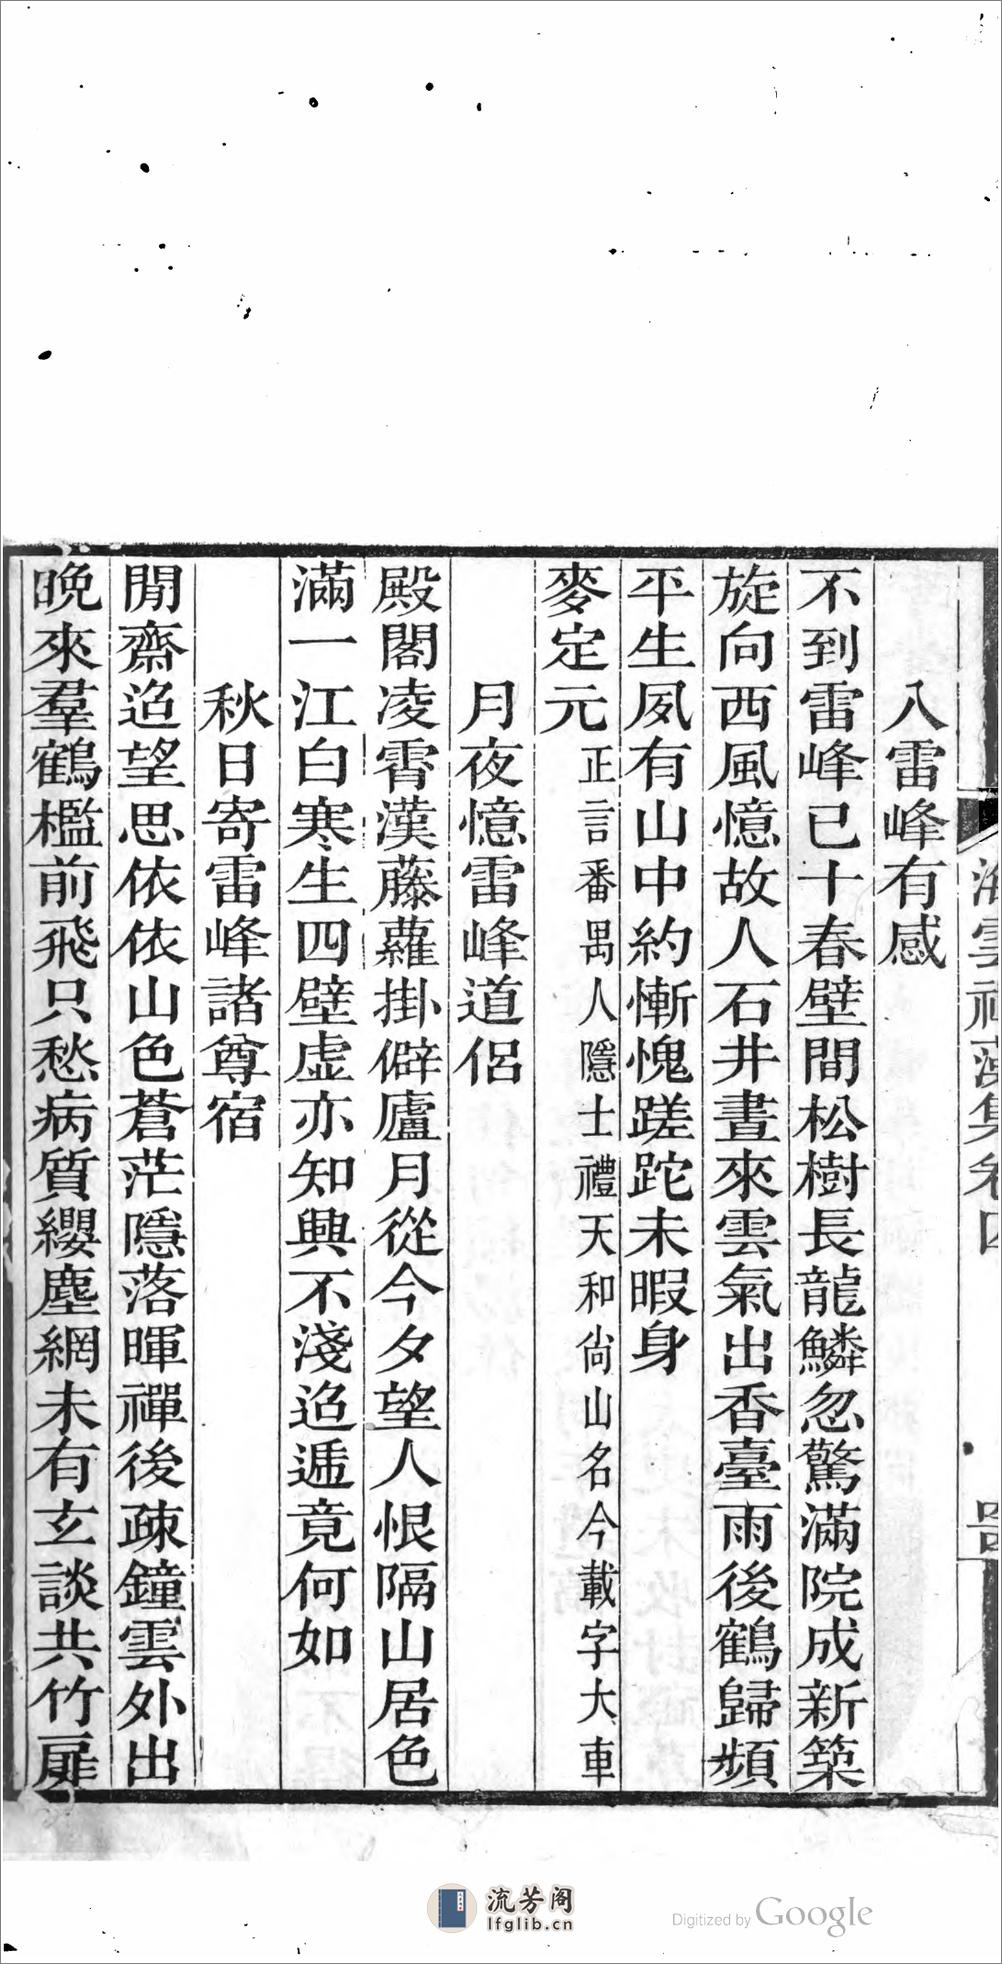 海雲禪藻集卷四
入雷峰有感
不到雷峰已十春壁間松樹長龍鱗忽驚滿院成新築
旋向西風憶故人石井晝來雲氣出香臺雨後鶴歸頻
平生夙有山中約慚愧蹉跎未暇身
麥定元正言番禺人隱士禮天和尙山名今載字大車
月夜憶雷峰道侶
殿閣凌霄漢藤蘿掛僻廬月從今夕望人恨隔山居色
滿一江白寒生四壁虛亦知興不淺迨遞竟何如
秋日寄雷峰諸尊宿
閒齋迨望思依依山色蒼茫隱落暉禪後疎鐘雲外出
晚來羣鶴檻前飛只愁病質纓塵網未有玄談共竹扉
流芳阁
lfglib.cn
Digitized by Google